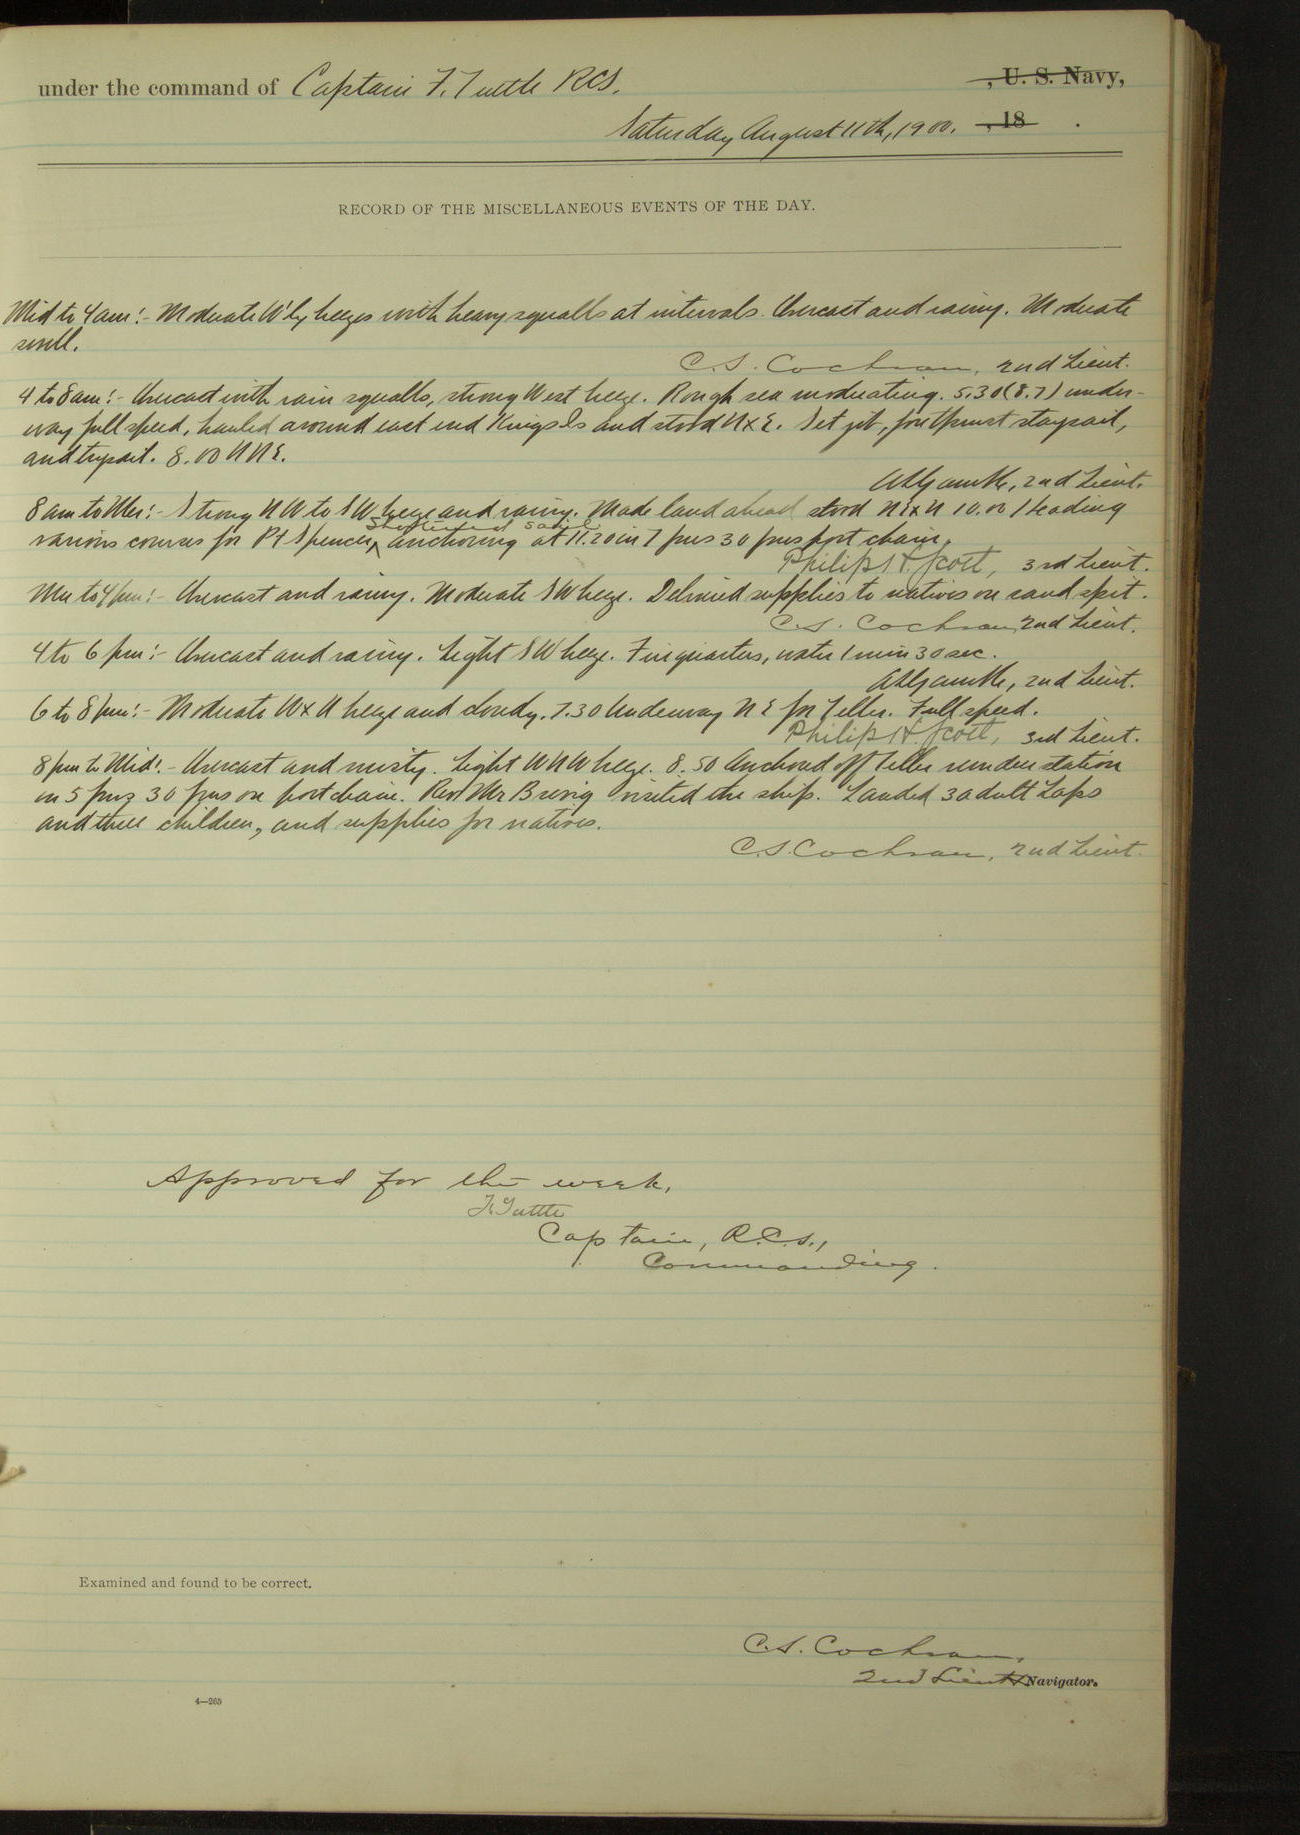 under the command of Captain F. Tuttle RCS. , U. S. Navy,
Saturday August 11th, 1900. , 18 .
RECORD OF THE MISCELLANEOUS EVENTS OF THE DAY.
Mid to 4 am:- Moderate W'ly breezes with heavy squalls at intervals. Overcast and rainy. Moderate
swell.
C. S. Cochran, 2nd Lieut.
4 to 8 am:- Overcast with rain squalls, strong West breeze. Rough sea moderating. 5.30 (8.7) under-
way full speed, hauled around east end Kings Is and stood NxE. Set jib, foretopmast staysail,
and trysail. 8.00 NNE.
2nd Lieut.
8 am to Mer:- Strong NW to SW breeze and rainy. Made land ahead stood NExN 10.00 / Heading
various courses for Pt Spencer, ^ anchoring at 11.20 in 7 fms 30 fms port chain.
Shortened sail
Philip H. Scott, 3rd Lieut.
Mer to 4 pm:- Overcast and rainy. Moderate SW breeze. Delivered supplies to natives on sand spit.
C. S. Cochran 2nd Lieut.
4 to 6 pm:- Overcast and rainy. Light SW breeze. Fire quarters, water 1 min 30 sec.
2nd Lieut.
6 to 8 pm:- Moderate WxN breeze and cloudy. 7.30 Underway NE for Teller. Full speed.
Philip H. Scott, 3rd Lieut.
8 pm to Mid:- Overcast and misty. Light WNW breeze. 8.50 Anchored off Teller reindeer station
in 5 fms 30 fms on port chain. Rev Mr Brevig visited the ship. Landed 3 adult Laps
and three children, and supplies for natives.
C. S. Cochran, 2nd Lieut.
Approved for the week,
F. Tuttle
Captain, R.C.S.,
Commanding.
Examined and found to be correct.
C. S. Cochran,
2nd Lieut Navigator.
4—265